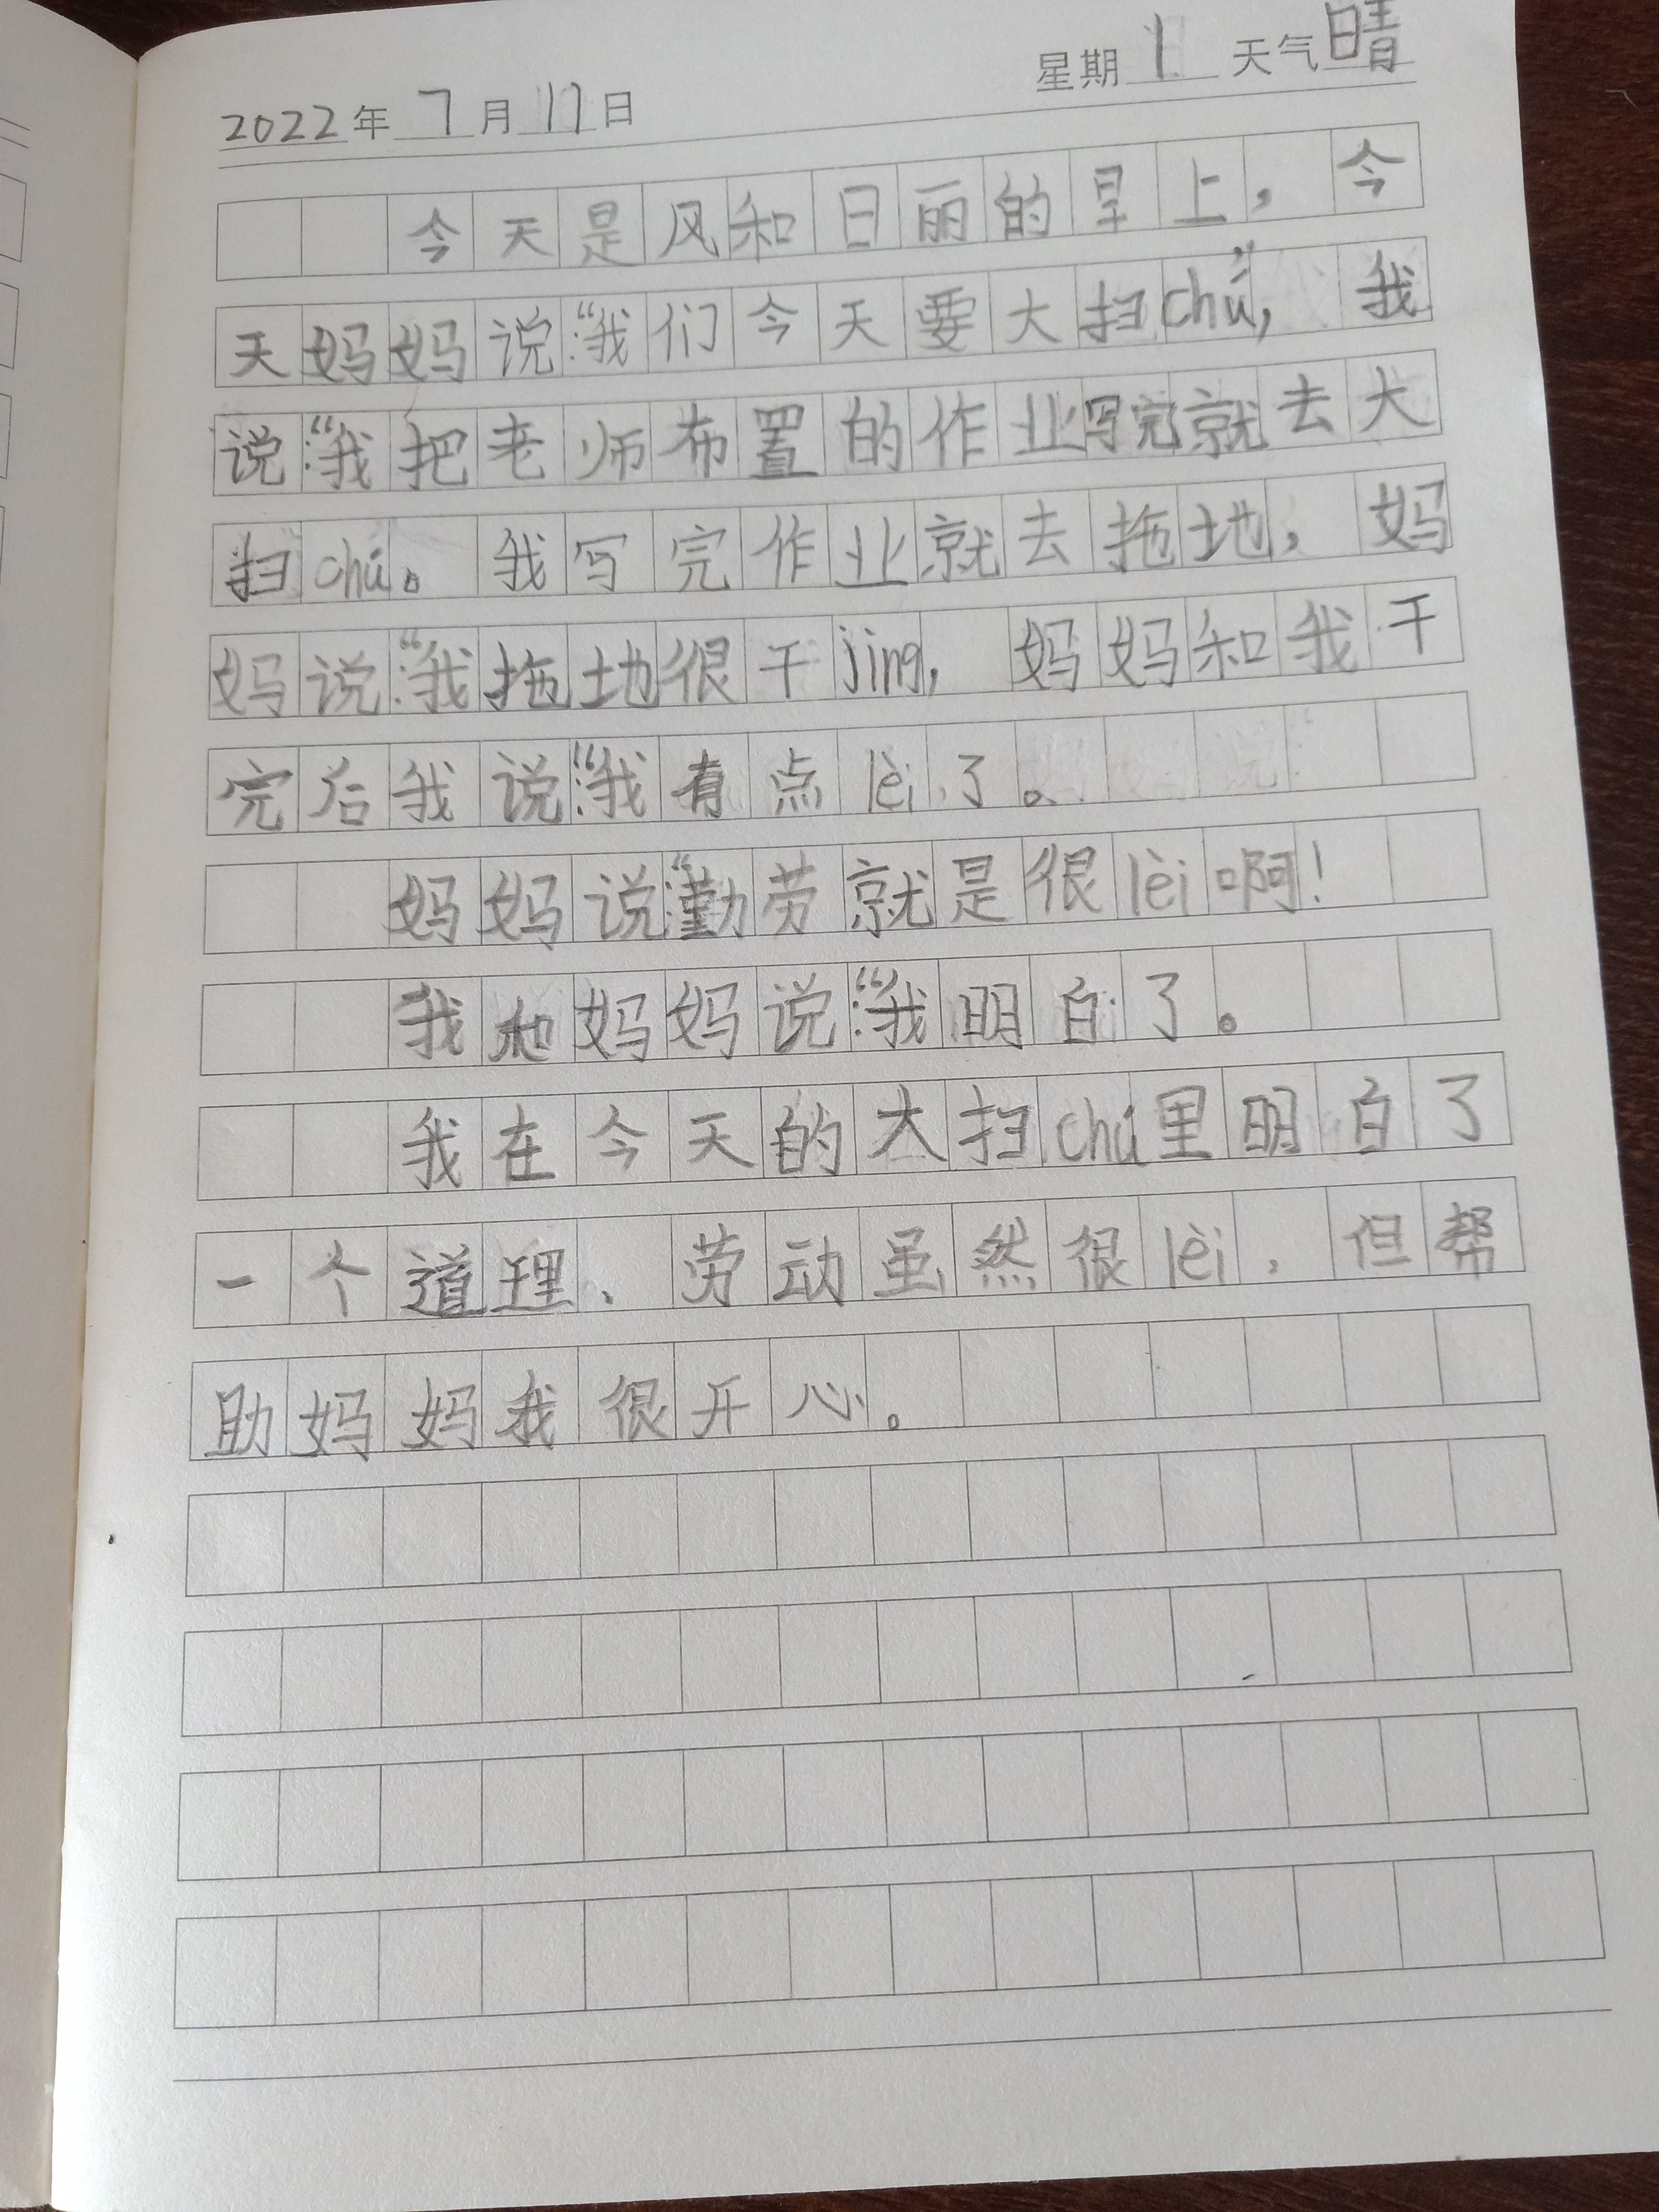 星期 1 天气 晴
2022年 7 月 11 日
今天是风和日丽的早上，今
天妈妈说:“我们今天要大扫chú”，我
说:“我把老师布置的作业写完就去大
扫chú。我写完作业就去拖地，妈
妈说:“我拖地很干jing，妈妈和我干
完后我说:“我有点lèi了。
妈妈说:“勤劳就是很lèi啊！
我和妈妈说:“我明白了。
我在今天的大扫chú里明白了
一个道理、劳动虽然很lèi，但帮
助妈妈我很开心。